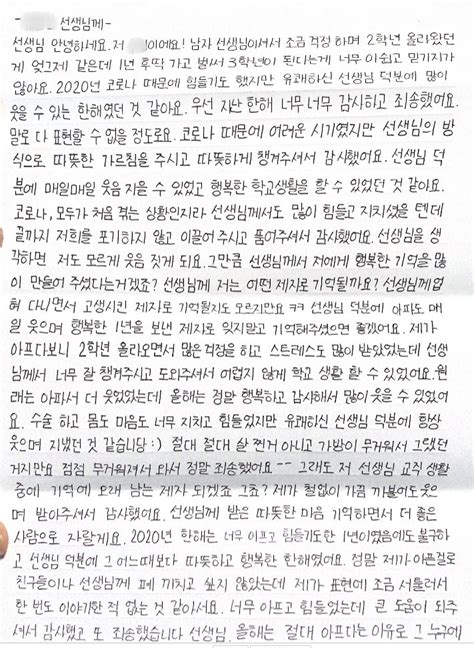 - 선생님께-
선생님 안녕하세요. 저 이에요! 남자 선생님이셔서 조금 걱정 하며 2학년 올라왔던
게 엊그제 같은데 1년 후딱 가고 벌써 3학년이 된다는게 너무 아쉽고 믿기지가
않아요. 2020년 코로나 때문에 힘들기도 했지만 유쾌하신 선생님 덕분에 많이
웃을 수 있는 한해였던 것 같아요. 우선 지난 한해 너무너무 감사하고 죄송했어요.
말로 다 표현할 수 없을 정도로요. 코로나 때문에 어려운 시기였지만 선생님의 방
식으로 따뜻한 가르침을 주시고 따뜻하게 챙겨주셔서 감사했어요. 선생님 덕
분에 매일매일 웃음 지을 수 있었고 행복한 학교생활을 할 수 있었던 것 같아요.
코로나, 모두가 처음 겪는 상황인지라 선생님께서도 많이 힘들고 지치셨을 텐데
끝까지 저희를 포기하지 않고 이끌어 주시고 품어주셔서 감사했어요. 선생님을 생
각하면 저도 모르게 웃음 짓게 되요. 그만큼 선생님께서 저에게 행복한 기억을 많
이 만들어 주셨다는거겠죠? 선생님께 저는 어떤 제자로 기억될까요? 선생님께 업
혀 다니면서 고생시킨 제자로 기억될지도 모르지만요 ㅋㅋ 선생님 덕분에 아파도 매
일 웃으며 행복한 1년을 보낸 제자로 잊지말고 기억해주셨으면 좋겠어요. 제가
아프다보니 2학년 올라오면서 많은 걱정을 하고 스트레스도 많이 받았었는데 선생
님께서 너무 잘 챙겨주시고 도와주셔서 어렵지 않게 학교 생활 할 수 있었어요. 원
래는 아파서 더 웃었었는데 올해는 정말 행복하고 감사해서 많이 웃을 수 있었어
요. 수술 하고 몸도 마음도 너무 지치고 힘들었지만 유쾌하신 선생님 덕분에 항상
웃으며 지냈던 것 같습니당 :) 절대 절대 살 찐거 아니고 가방이 무거워서 그랬던
거지만요 점점 무거워져서 와서 정말 죄송했어요 ㅡㅡ 그래도 저 선생님 교직 생활
중에 기억에 오래 남는 제자 되겠죠 그죠? 제가 철없이 가끔 까불어도 웃으
며 받아주셔서 감사했어요. 선생님께 받은 따뜻한 마음 기억하면서 더 좋은
사람으로 자랄게요. 2020년 한해는 너무 아프고 힘들기도한 1년이였음에도 불구하
고 선생님 덕분에 그 어느때보다 따뜻하고 행복한 한해였어요. 정말 제가 아픈걸로
친구들이나 선생님께 폐 끼치고 싶지 않았는데 제가 표현에 조금 서툴러서
한 번도 이야기한 적 없는 것 같아서요. 너무 아프고 힘들었는데 큰 도움이 되주
셔서 감사했고 또 죄송했습니다 선생님. 올해는 절대 아프다는 이유로 그 누구에